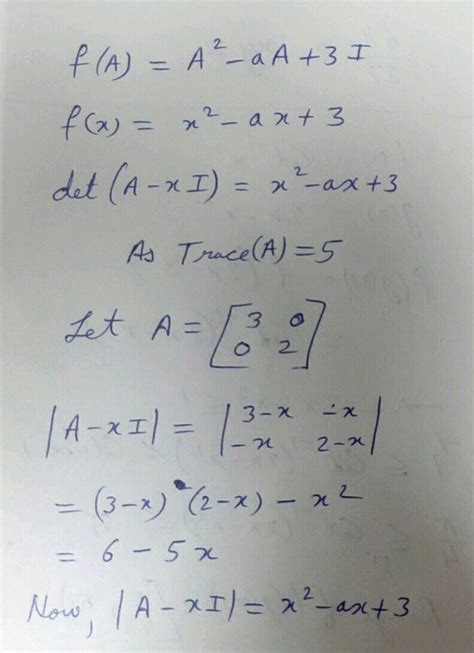 f(A) = A² - aA + 3I
f(x) = x² - ax + 3
det (A - xI) = x² - ax + 3
As Trace(A) = 5
Let A = [3 0
0 2]
|A - xI| = |3-x -x
-x 2-x|
= (3-x) (2-x) - x²
= 6 - 5x
Now, |A - xI| = x² - ax + 3